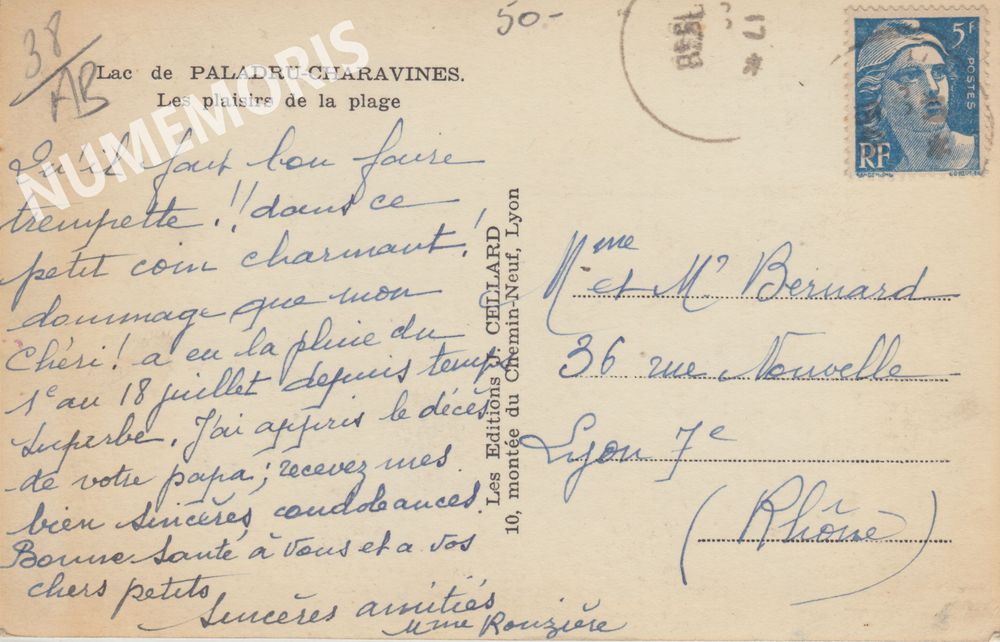 38
AB
50-
Lac de PALADRU-CHARAVINES.
Les plaisirs de la plage
NUMEMORIS
Qu'il faut bon faire
trempette!! dans ce
petit coin charmant!
dommage que mon
Chéri! a eu la pluie du
1e au 18 juillet depuis temps
superbe. J'ai appris le décès
de votre papa; recevez mes
bien sincères condoléances.
Bonne santé à vous et a vos
chers petits
Sincères amitiés
Mme Rouzière
Les Editions J. CELLARD
10, montée du Chemin-Neuf, Lyon
17
5F
POSTES
RF
Mme et Mr Bernard
36 rue Nouvelle
Lyon 7e
(Rhône)